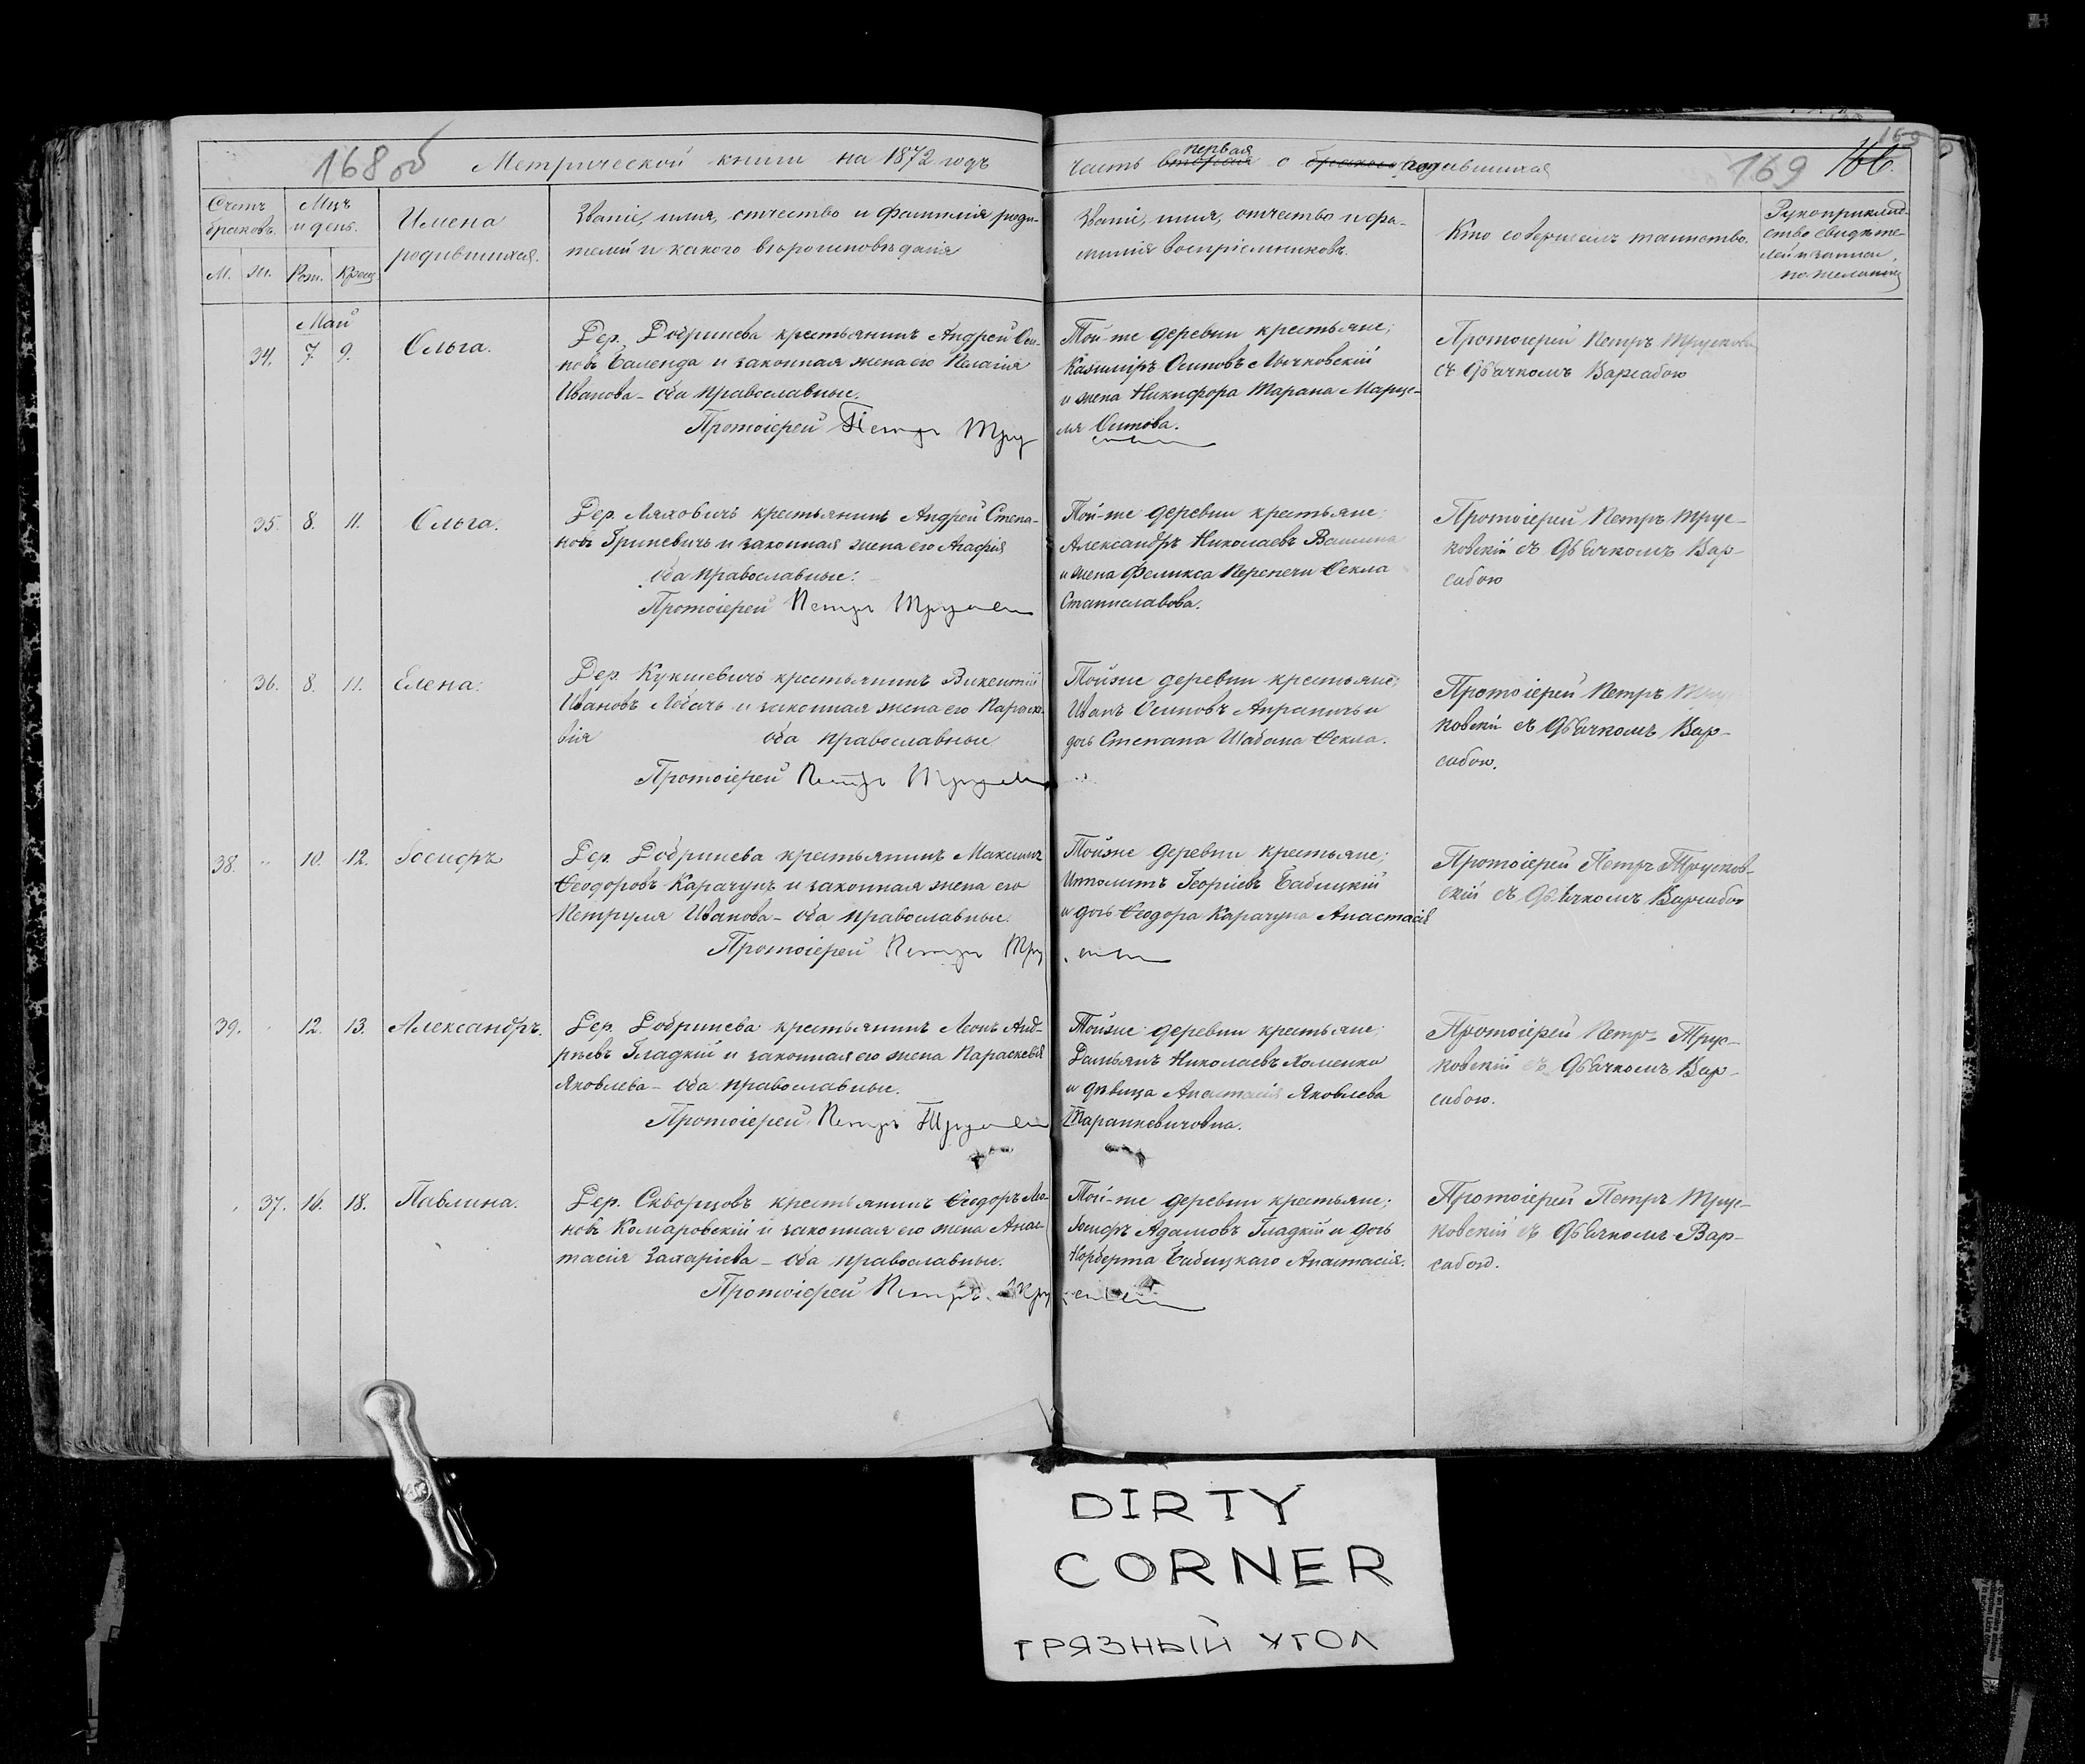 168 об
Метрической книги на 1872 годъ
часть вторая первая о бракосо родившихся
169
Счетъ браковъ.
М. Ж.
Мцъ и день.
Рож. Крещ
Имена
родившихся.
Званіе, имя, отчество и фамилія роди-
телей и какого вѣроисповѣданія
Званіе, имя, отчество и фа-
милія воспріемниковъ.
Кто совершалъ таинство.
Рукоприклад-
ство свидѣте-
лей и записи,
по желанію
Май
34. 7. 9.
Ольга.
Дер. Добринева крестьянинъ Андрей Оси-
повъ Баленда и законная жена его Пелагія
Иванова - оба православные.
Протоіерей Петръ
Той-же деревни крестьяне;
Казиміръ Осиповъ Мычковскій
и жена Никифора Тарана Марце-
ля Осипова.
Протоіерей Петръ
съ дьячкомъ Варсабою
35. 8. 11.
Ольга.
Дер. Ляховичъ крестьянинъ Андрей Степа-
новъ Гриневичъ и законная жена его Агафія
оба православные.
Протоіерей Петръ
Той-же деревни крестьяне:
Александръ Николаевъ
и жена Феликса Перепечи Ѳекла
Станиславова.
Протоіерей Петръ Трус-
ковскій съ дьячкомъ Вар-
сабою
36. 8. 11.
Елена.
Дер. Кукшевичъ крестьянинъ Викентій
Ивановъ Лобачъ и законная жена его Параске-
вія оба православные
Протоіерей Петръ
Тойже деревни крестьяне;
Иванъ Осиповъ и
дочь Степана Шабана Ѳекла.
Протоіерей Петръ Трус
ковскій съ дьячкомъ Вар-
сабою.
38. 10. 12.
Іосифъ
Дер. Добринева крестьянинъ Максимъ
Ѳеодоровъ Карачунъ и законная жена его
Петруля Иванова - оба православные.
Протоіерей Петръ
Тойже деревни крестьяне;
Ипполитъ Георгіевъ Бабицкій
и дочь Ѳеодора Карачуна Анастасія
Протоіерей Петръ Трусков-
скій съ дьячкомъ Варсабою
39. 12. 13.
Александръ.
Дер. Добринева крестьянинъ Леонъ Анд-
реевъ Гладкій и законная его жена Параскевія
Яковлева - оба православные.
Протоіерей Петръ
Тойже деревни крестьяне:
Демьянъ Николаевъ Хоменко
и дѣвица Анастасія Яковлева
Таранкевичовна.
Протоіерей Петръ Трус-
ковскій съ дьячкомъ Вар-
сабою.
37. 16. 18.
Павлина.
Дер. Скворцовъ крестьянинъ Ѳеодоръ Ма-
новъ Комаровскій и законная его жена Анас-
тасія Захаріева - оба православные.
Протоіерей Петръ
Той-же деревни крестьяне;
Іосифъ Адамовъ Гладкій и дочь
Норберта Бабицкаго Анастасія.
Протоіерей Петръ Трус-
ковскій съ дьячкомъ Вар-
сабою.
DIRTY
CORNER
ГРЯЗНЫЙ УГОЛ